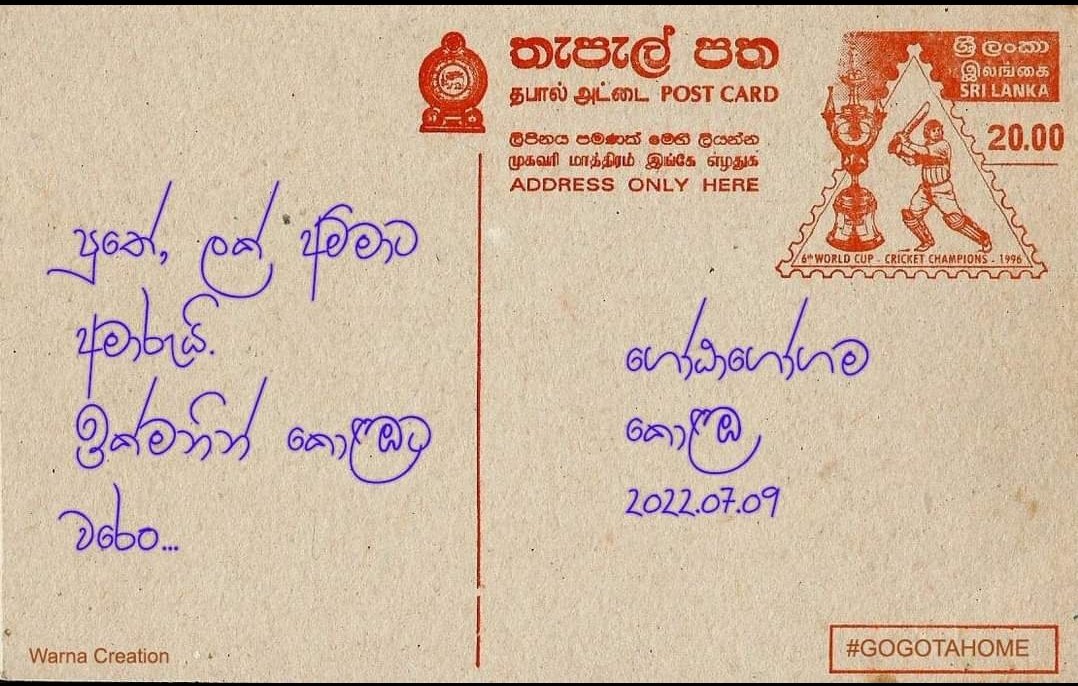 තැපැල් පත
தபால் அட்டை POST CARD
ලිපිනය පමණක් මෙහි ලියන්න
முகவரி மாத்திரம் இங்கே எழுதுக
ADDRESS ONLY HERE
ශ්‍රී ලංකා
இலங்கை
SRI LANKA
20.00
6th WORLD CUP - CRICKET CHAMPIONS - 1996
පුතේ, ලක් අම්මාට
අමාරුයි.
ඉක්මනින් කොළඹට
වරෙං...
ගෝඨාගෝගම
කොළඹ
2022.07.09
Warna Creation
#GOGOTAHOME